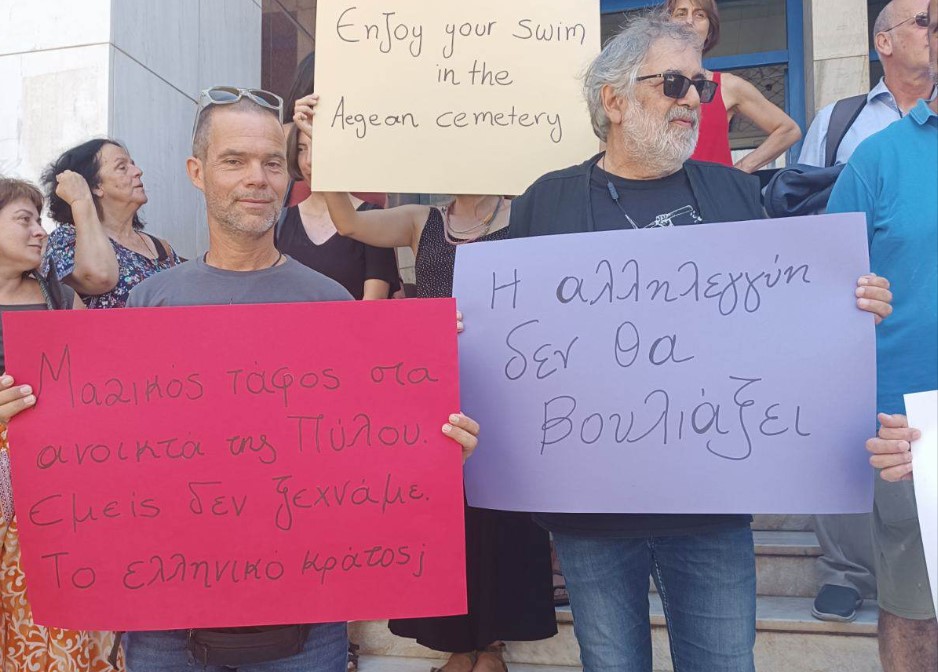 Enjoy your swim
in the
Aegean cemetery
Η αλληλεγγύη
δεν θα
βουλιάξει
Μαζικός τάφος στα
ανοικτα της Πύλου.
Εμείς δεν ξεχνάμε.
Το ελληνικό κράτος;